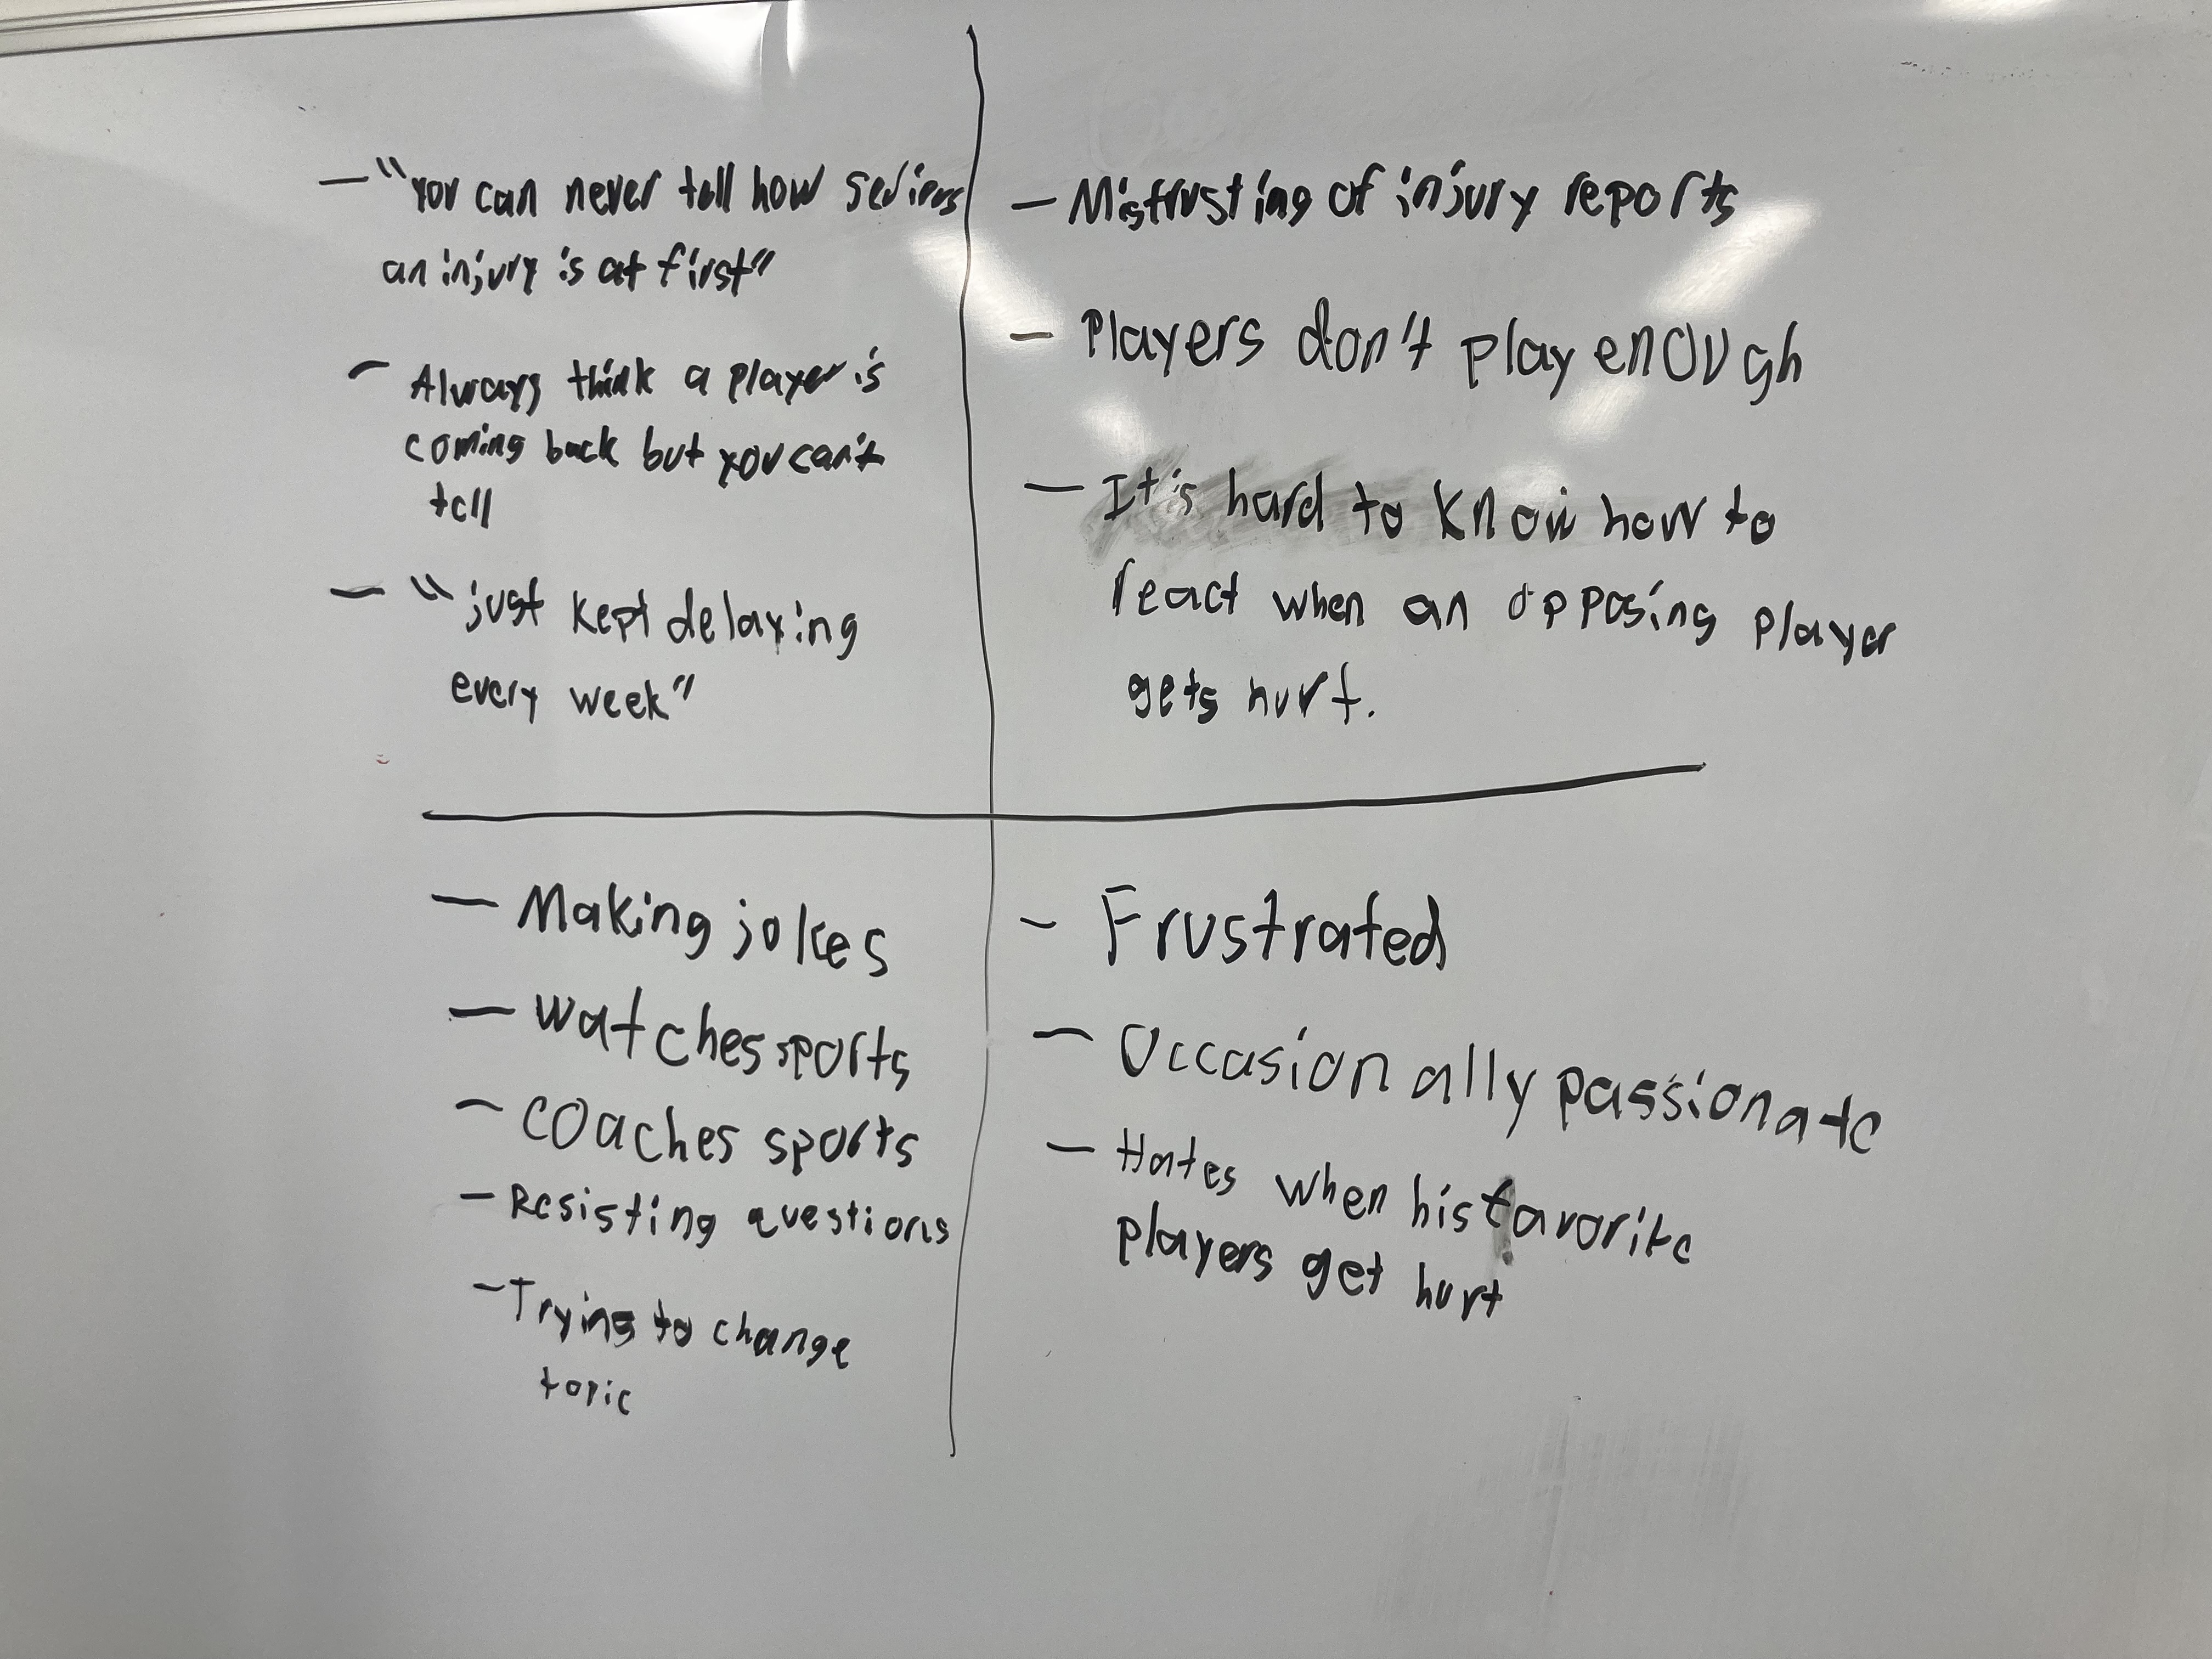 — "You can never tell how serious
an injury is at first"
— Always think a player is
coming back but you can't
tell
— "just kept delaying
every week"
— Mistrusting of injury reports
— Players don't play enough
— It's hard to know how to
react when an opposing player
gets hurt.
— Making jokes
— Watches sports
— Coaches sports
— Resisting questions
— Trying to change
topic
— Frustrated
— Occasionally passionate
— Hates when his favorite
players get hurt